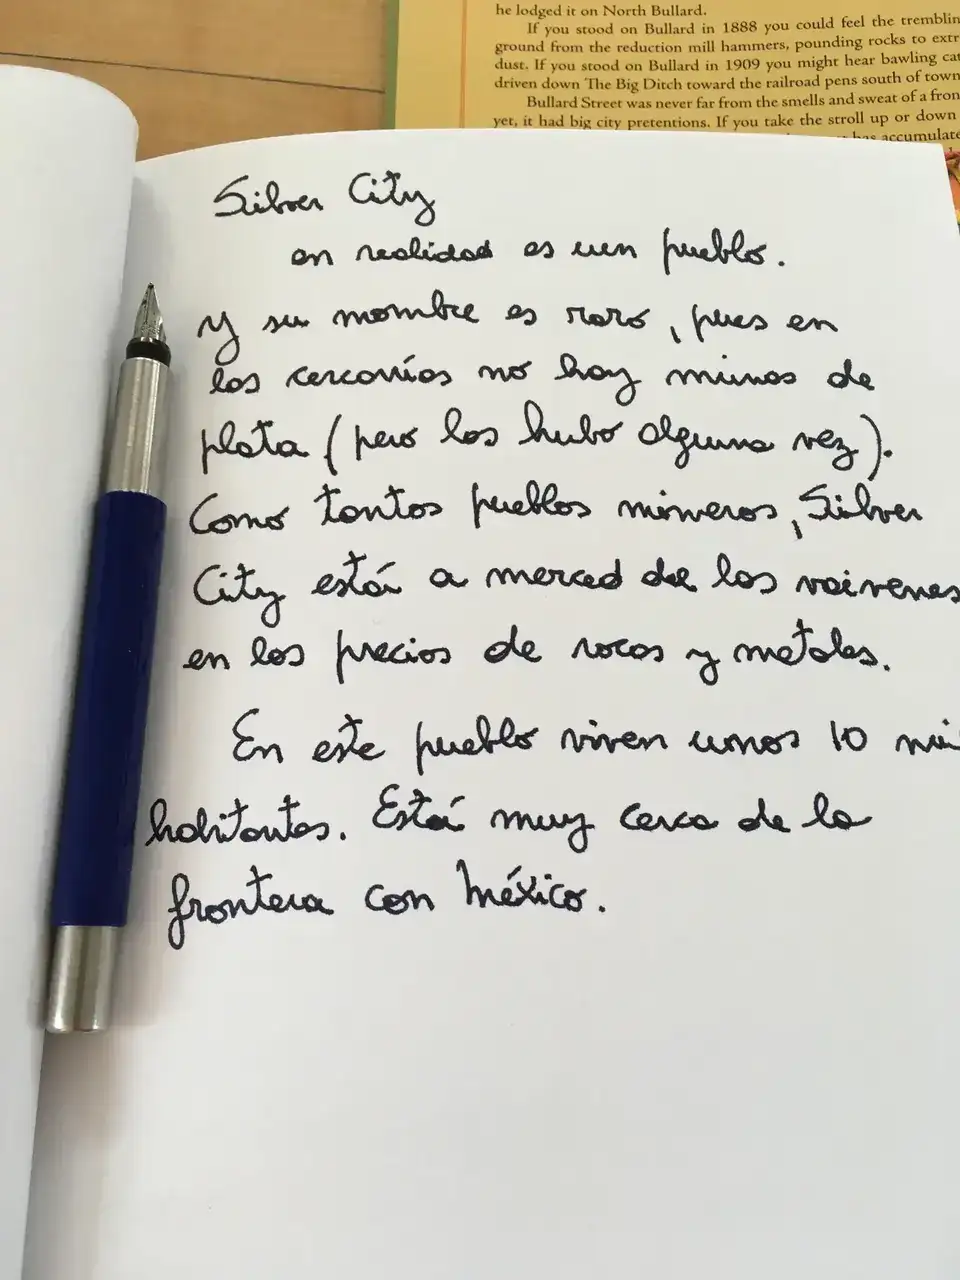 he lodged it on North Bullard.
If you stood on Bullard in 1888 you could feel the tremblin
ground from the reduction mill hammers, pounding rocks to extr
dust. If you stood on Bullard in 1909 you might hear bawling cat
driven down The Big Ditch toward the railroad pens south of town
Bullard Street was never far from the smells and sweat of a fron
yet, it had big city pretentions. If you take the stroll up or down
has accumulate
Silver City
en realidad es un pueblo.
Y su nombre es raro, pues en
las cercanías no hay minas de
plata (pero las hubo alguna vez).
Como tantos pueblos mineros, Silver
City está a merced de los vaivenes
en los precios de rocas y metales.
En este pueblo viven unos 10 mil
habitantes. Está muy cerca de la
frontera con México.